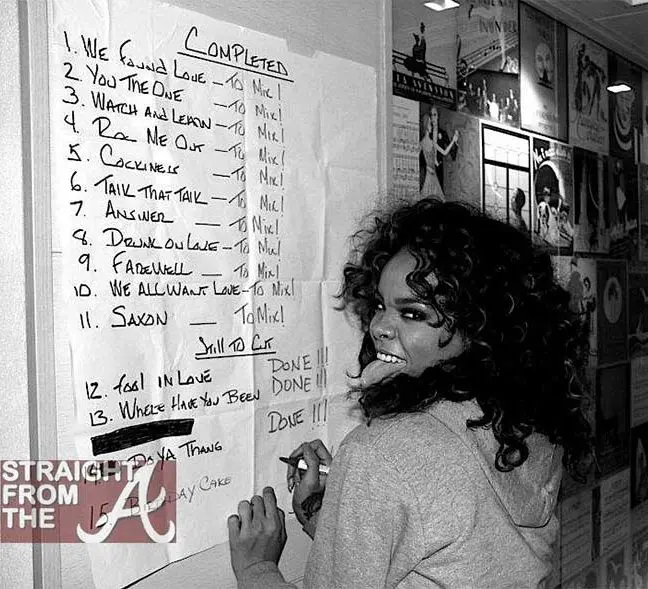 COMPLETED
1. WE FOUND LOVE - TO MIX!
2. YOU THE ONE - TO MIX!
3. WATCH AND LEARN - TO MIX!
4. ROC ME OUT - TO MIX!
5. COCKINESS - TO MIX!
6. TALK THAT TALK - TO MIX!
7. ANSWER - TO MIX!
8. DRUNK ON LOVE - TO MIX!
9. FAREWELL - TO MIX!
10. WE ALL WANT LOVE - TO MIX!
11. SAXON - TO MIX!
STILL TO CUT
12. FOOL IN LOVE DONE!!!
13. WHERE HAVE YOU BEEN DONE!!!
DO YA THANG DONE!!!
15 BIRTHDAY CAKE
STRAIGHT
FROM
THE A